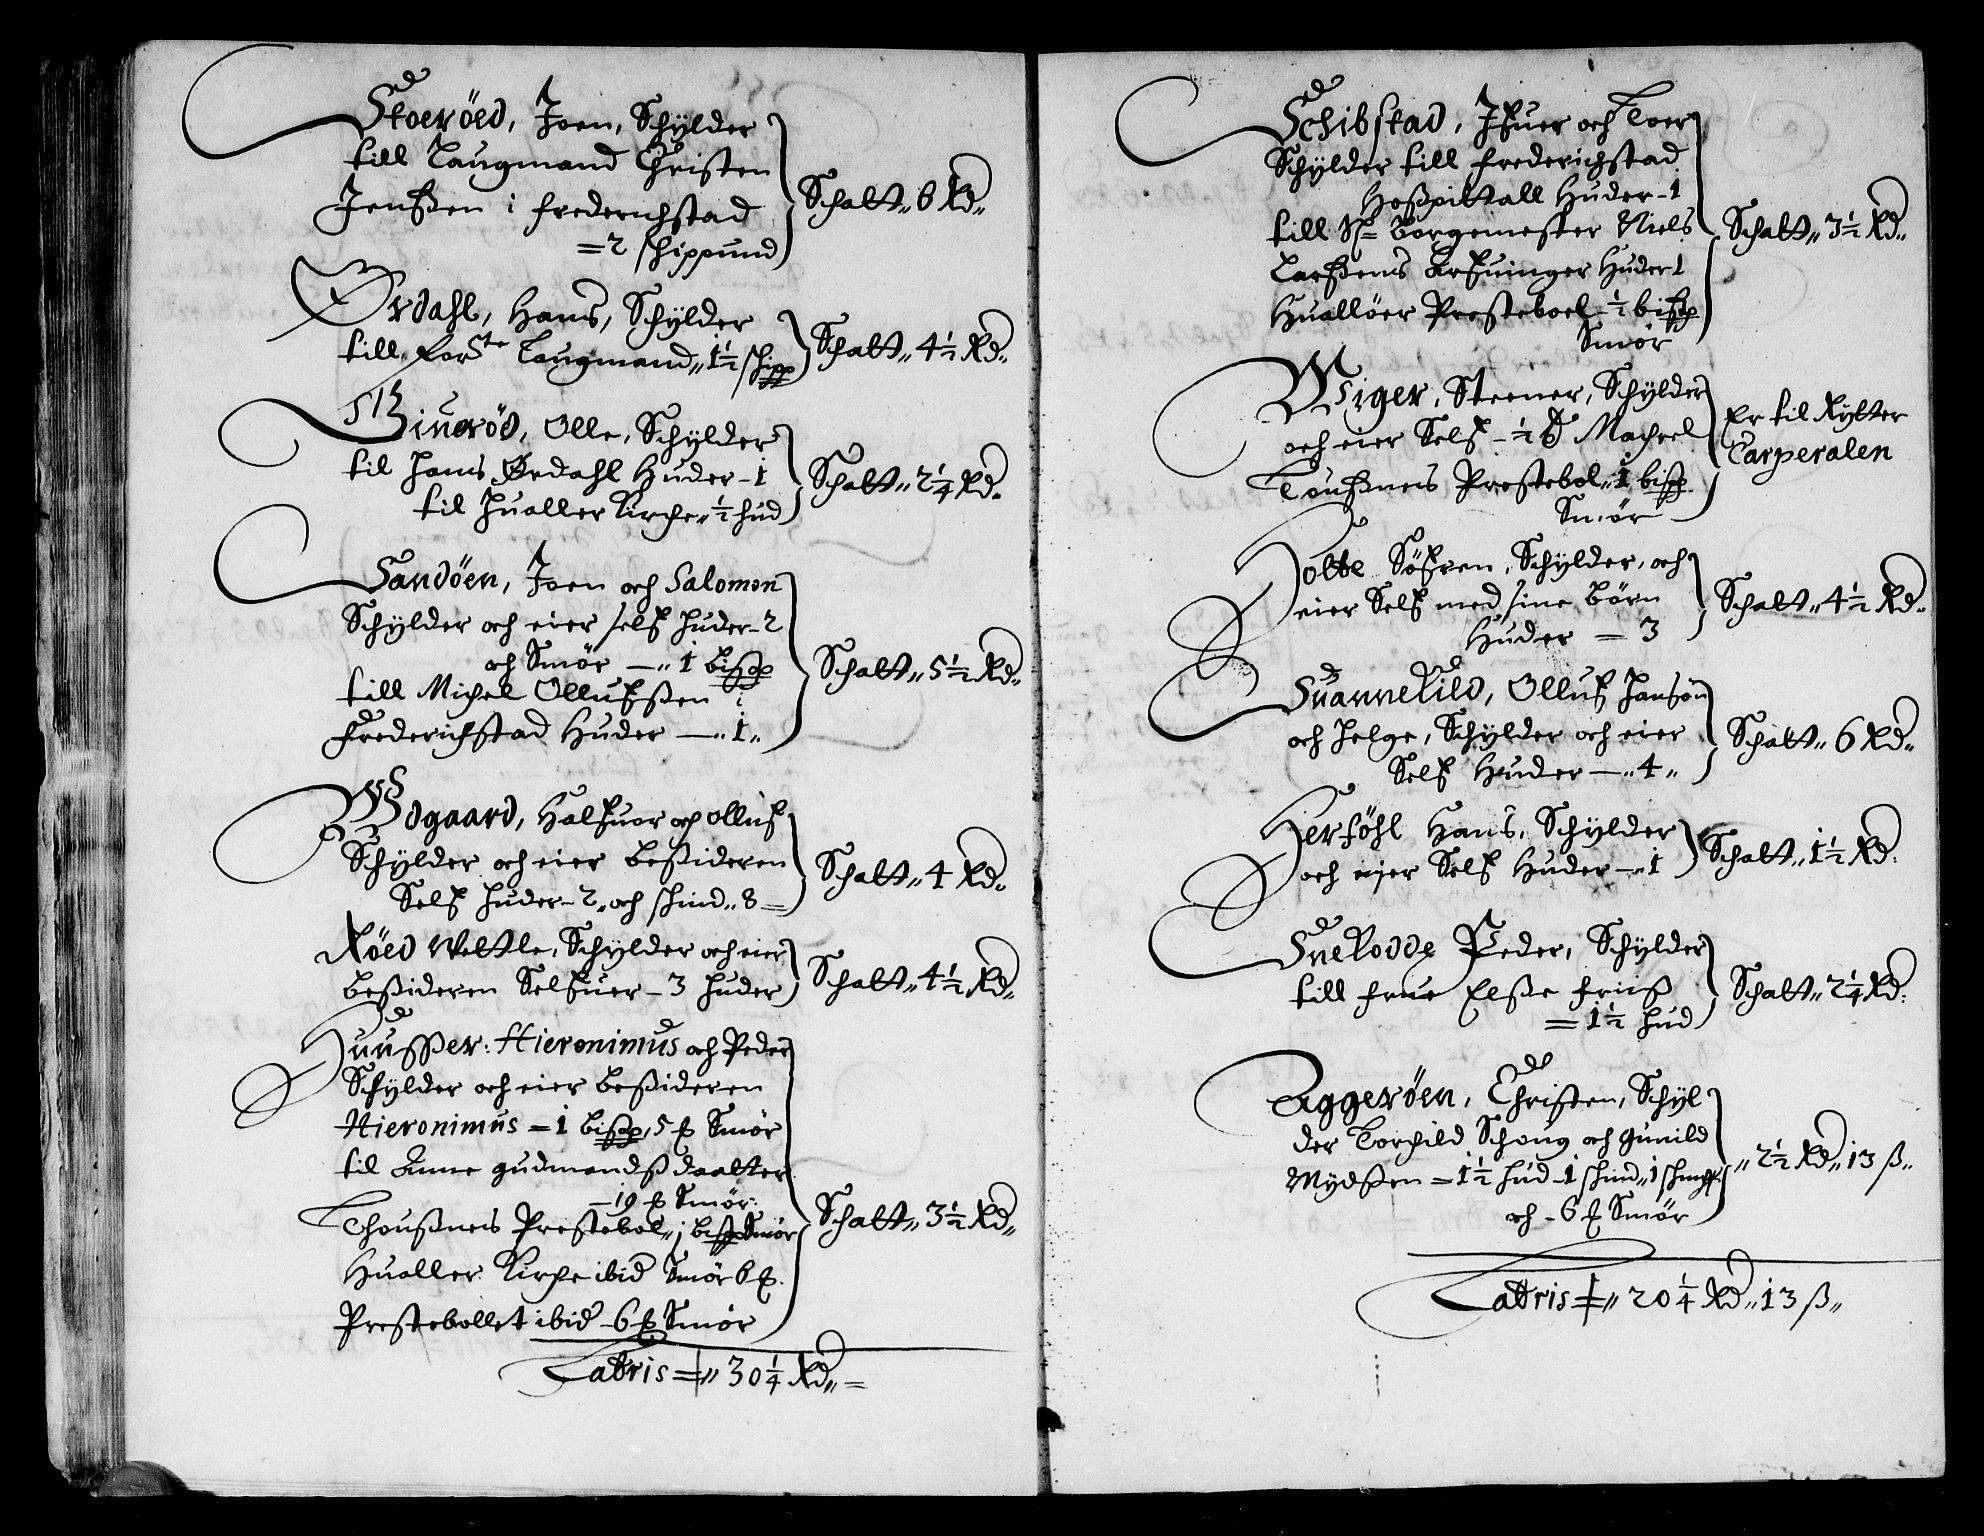 Stoeröed, Joen, Schÿlder
till Laugmand Christen
Jenßen i frederichstad
= 2 schippund
Schatt „ 6 Rd „
Ørdahl, Hans, Schÿlder
till forste Laugmand „ 1½ schipp
Schatt „ 4½ Rd „
Olle, Schÿlder
til Hans Ørdahl Huder - 1
til Hualler Kirche „ ½ hud
Schatt „ 2¼ Rd „
Sandöen, Joen och Salomon
Schÿlder och eier self huder - 2
och Smör — „ 1 bißp
till Michel Ollufßen i
Frederichstad Huder — „ 1 „
Schatt „ 5½ Rd „
Ødgaard, Halfuor och olluf
Schÿlder och eier beßideren
Self huder - 2 „ och schind „ 8 =
Schatt „ 4 Rd „
Röed Wettle, Schÿlder och eier
beßideren Selfuer - 3 huder
Schatt „ 4½ Rd „
Huußer: Hieronimus och Peder
Schÿlder och eier beßideren
Hieronimus = 1 bißp, 5 ℔ Smör
til Anne gudmandß daatter
- 19 ℔ Smör
Thoußneis Prestebol „ j bißp Smör
Hualler Kirche ibid Smör 6 ℔.
Prestebollet ibid - 6 ℔ Smör
Schatt „ 3½ Rd „
Lattris = „ 30¼ Rd „ =
Schibstad, Ifuer och Toer
Schÿlder till frederichstad
Hoßpittall Huder - 1
till Sl= Borgemester Niels
Larßens arfuinger Huder 1
Hualöer Presteboel ½ bißp
Smör
Schatt „ 3½ Rd „
Wiger, Steener, Schÿlder
och eier Self - ½ Machel
Toußneis Prestebol „ 1 bißp
Smör
Er til Rytter
Carperalen
Holte Söfren, Schÿlder, och
eier Self med sine Börn
Huder = 3
Schatt „ 4½ Rd „
Suannekild, Olluf Hansön
och Helge, Schÿlder och eier
Self Huder — „ 4 „
Schatt „ 6 Rd „
Herföhl Hans, Schÿlder
och eijer Self Huder — „ 1
Schatt „ 1½ Rd :
Snekodde Peder, Schÿlder
till frue Elße friiß
= 1½ hud
Schatt „ 2¼ Rd :
Aggeröen, Christen, Schÿl
der Torchild Schoug och gunild
Mÿdßen = 1½ hud - 1 schind „ 1 schipp
och - 6 ℔ Smör
„ 2½ Rd „ 13 ß „
Lattris = „ 20¼ Rd „ 13 ß „